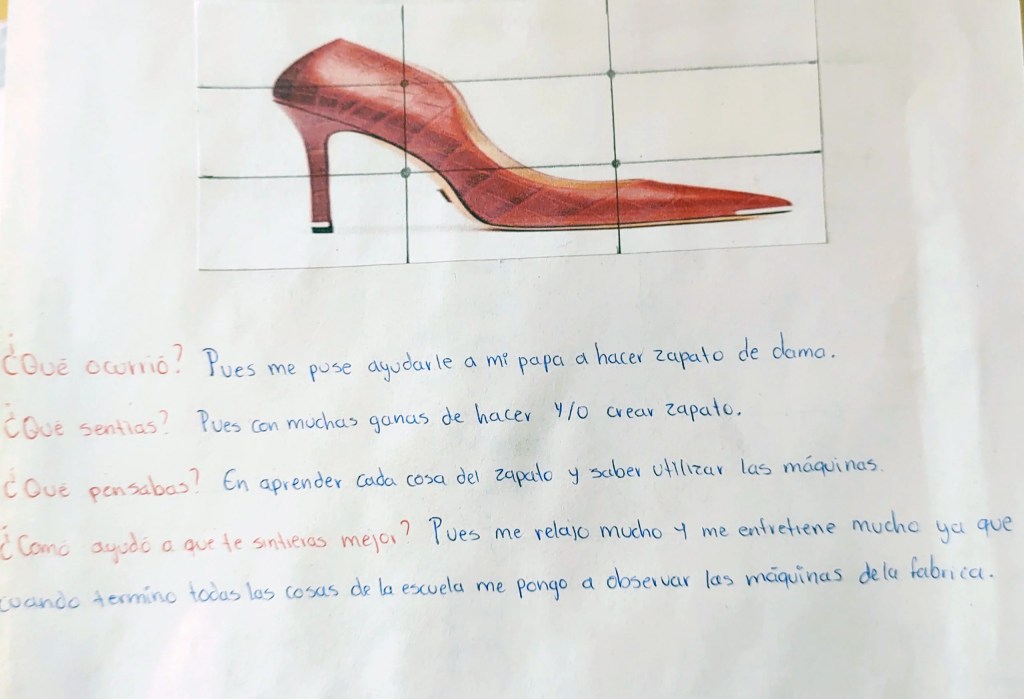 ¿Qué ocurrió? Pues me puse ayudarle a mi papa a hacer zapato de dama.
¿Qué sentias? Pues con muchas ganas de hacer y/o crear zapato.
¿Qué pensabas? En aprender cada cosa del zapato y saber utilizar las máquinas.
¿Como ayudó a que te sintieras mejor? Pues me relajo mucho y me entretiene mucho ya que
cuando termino todas las cosas de la escuela me pongo a observar las máquinas dela fabrica.